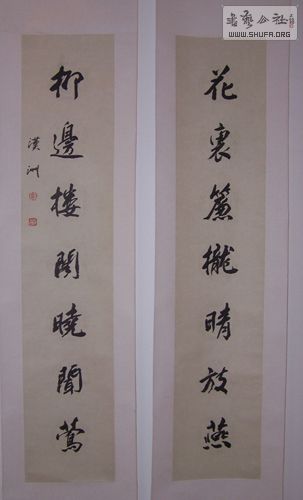 書藝公社
WWW.SHUFA.ORG
花裏簾櫳晴放燕
柳邊樓閣曉聞鶯
漢洲